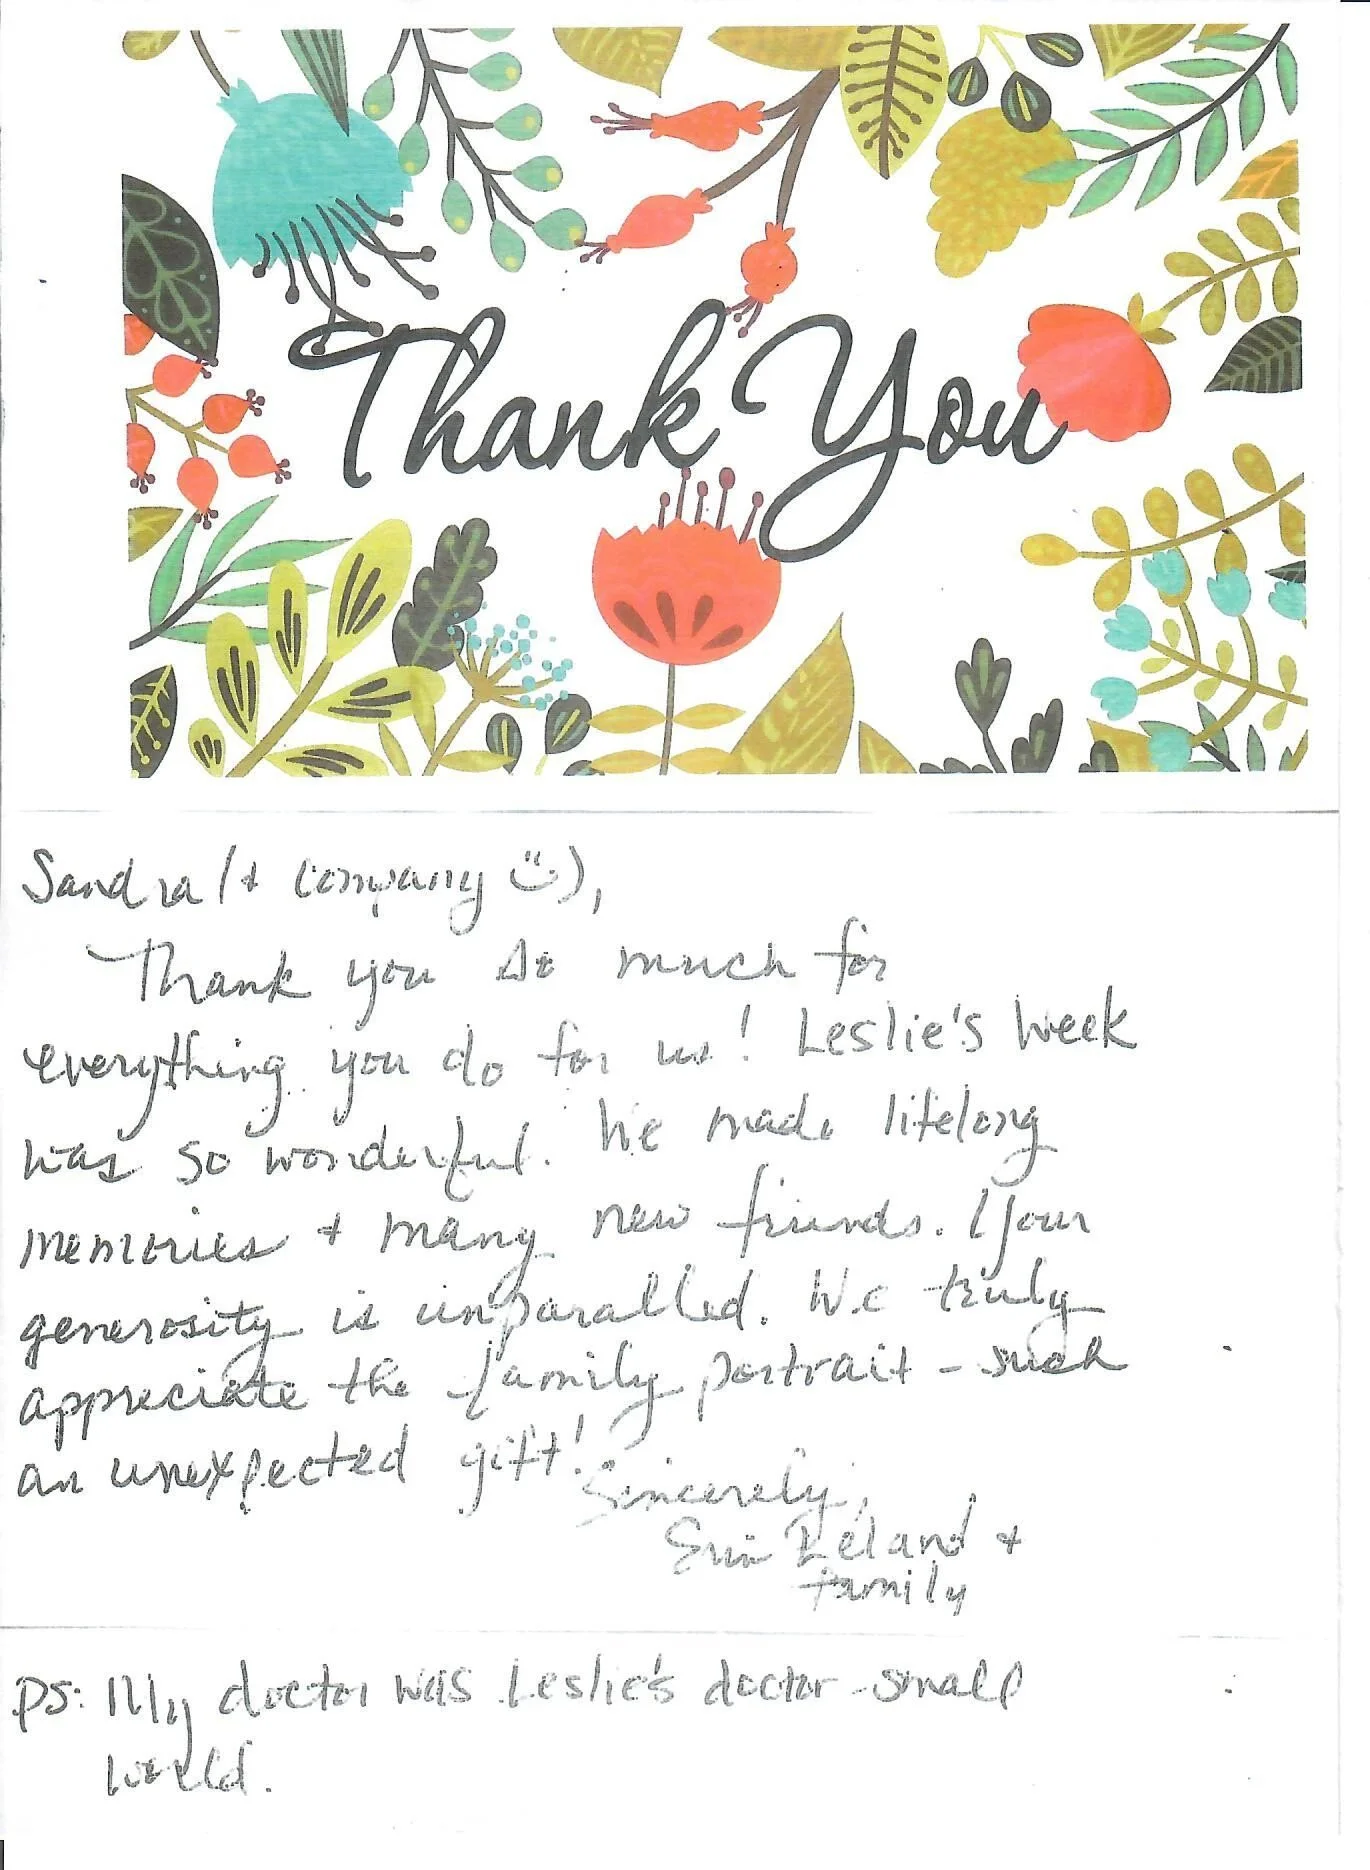 Thank You
Sandra (+ company ☺),
Thank you so much for
everything you do for us! Leslie's Week
was so wonderful. We made lifelong
memories + many new friends. Your
generosity is unparalled. We truly
appreciate the family portrait - such
an unexpected gift!
Sincerely,
Erin Ireland +
family
PS: My doctor was Leslie's doctor - small
world.